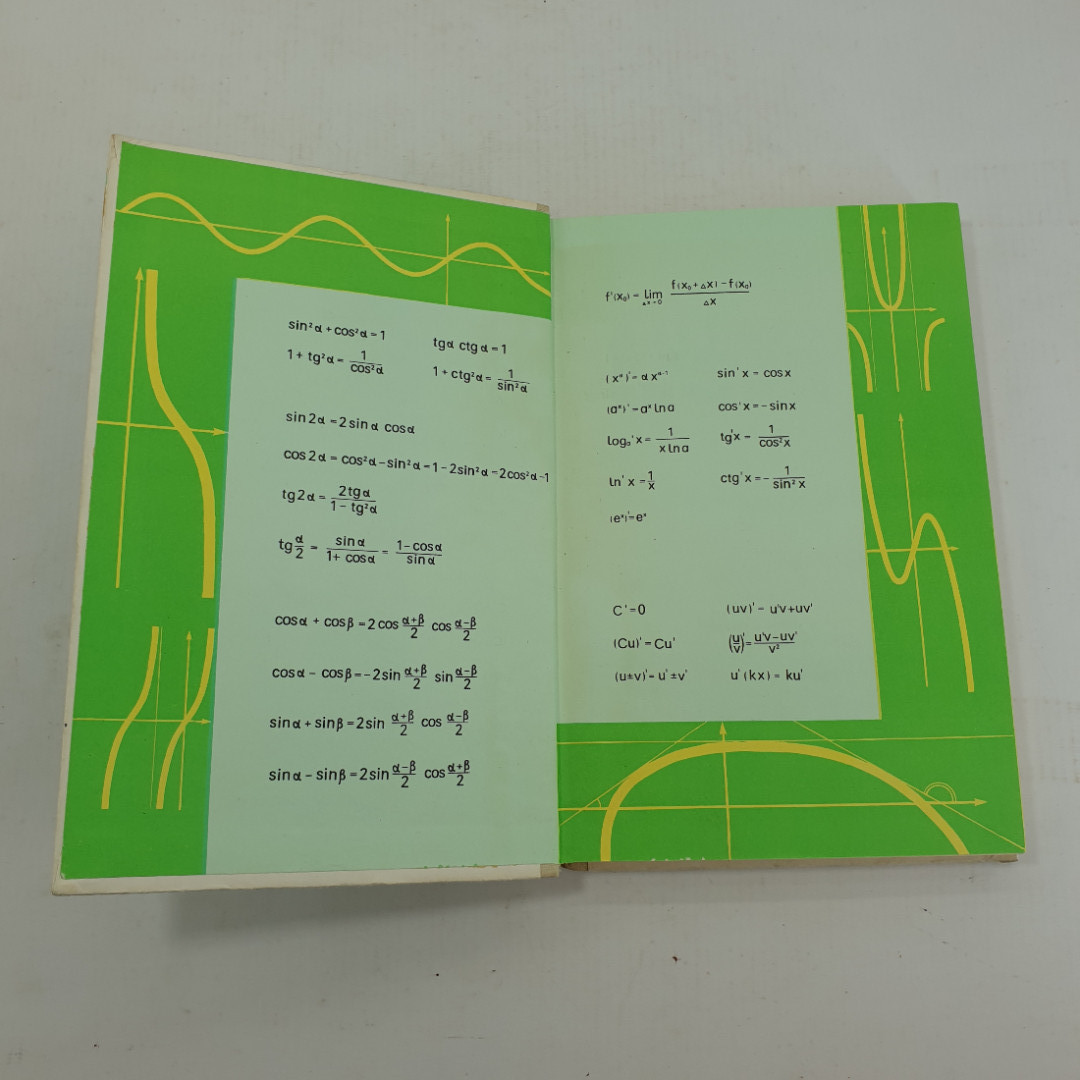 sin²α + cos²α = 1    tgα ctgα = 1
1 + tg²α = 1/cos²α    1 + ctg²α = 1/sin²α
sin2α = 2sinα cosα
cos2α = cos²α − sin²α = 1 − 2sin²α = 2cos²α − 1
tg2α = 2tgα/(1 − tg²α)
tg α/2 = sinα/(1 + cosα) = (1 − cosα)/sinα
cosα + cosβ = 2cos (α+β)/2 cos (α−β)/2
cosα − cosβ = −2sin (α+β)/2 sin (α−β)/2
sinα + sinβ = 2sin (α+β)/2 cos (α−β)/2
sinα − sinβ = 2sin (α−β)/2 cos (α+β)/2
f'(x₀) = lim Δx→0 (f(x₀ + Δx) − f(x₀))/Δx
(xᵅ)' = αxᵅ⁻¹    sin'x = cosx
(aˣ)' = aˣ lna    cos'x = −sinx
logₐ'x = 1/(x lna)    tg'x = 1/cos²x
ln'x = 1/x    ctg'x = −1/sin²x
(eˣ)' = eˣ
C' = 0    (uv)' = u'v + uv'
(Cu)' = Cu'    (u/v)' = (u'v − uv')/v²
(u±v)' = u' ± v'    u'(kx) = ku'